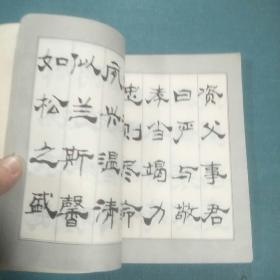 资父事君
曰严与敬
孝当竭力
忠则尽命
夙兴温凊
似兰斯馨
如松之盛